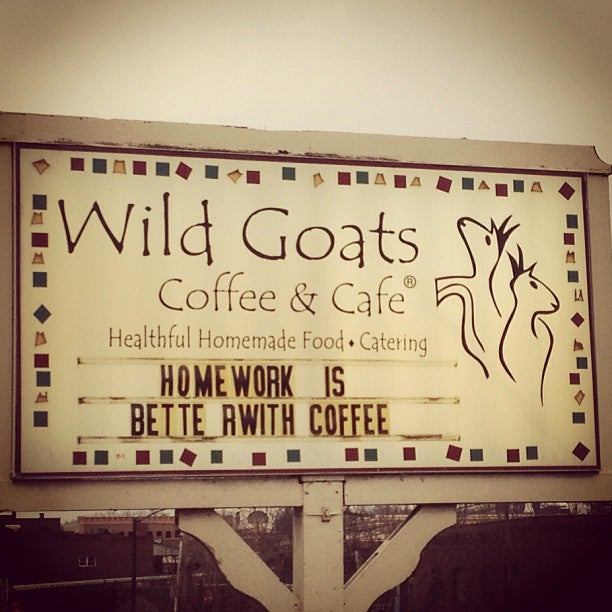 Wild Goats
Coffee & Cafe®
Healthful Homemade Food • Catering
HOMEWORK IS
BETTE RWITH COFFEE